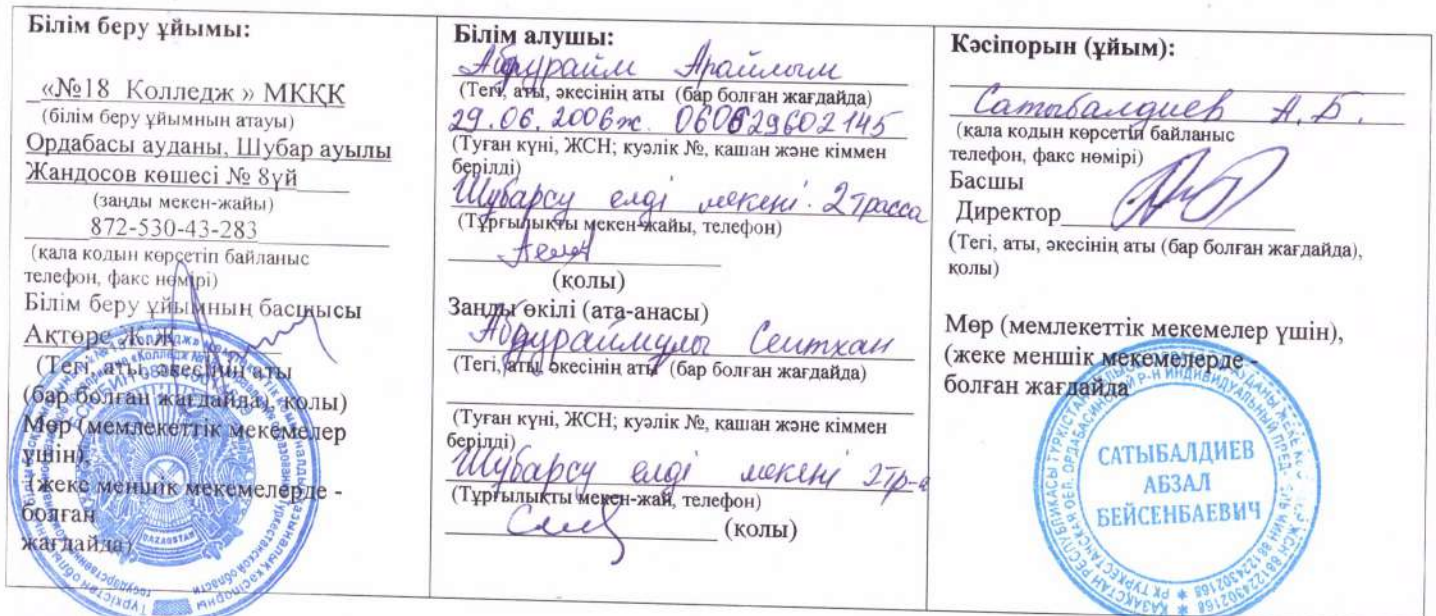 Білім беру ұйымы:
«№18 Колледж » МКҚК
(білім беру ұйымның атауы)
Ордабасы ауданы, Шубар ауылы
Жандосов көшесі № 8үй
(заңды мекен-жайы)
872-530-43-283
(қала кодын көрсетіп байланыс
телефон, факс нөмірі)
Білім беру ұйымның басшысы
Ақтөре Ж.Ж
(Тегі, аты, әкесінің аты
(бар болған жағдайда), қолы)
Мөр (мемлекеттік мекемелер
үшін),
(жеке меншік мекемелерде -
болған
жағдайда)
QAZAQSTAN
Білім алушы:
Абдурайм Арайлым
(Тегі, аты, әкесінің аты (бар болған жағдайда)
29.06.2006ж. 060629602145
(Туған күні, ЖСН; куәлік №, қашан және кіммен
берілді)
Шубарсу елді мекені. 2 трасса
(Тұрғылықты мекен-жайы, телефон)
(қолы)
Заңды өкілі (ата-анасы)
Абдураймулы Сеитхан
(Тегі, аты, әкесінің аты (бар болған жағдайда)
(Туған күні, ЖСН; куәлік №, қашан және кіммен
берілді)
Шубарсу елді мекені 2тр-а
(Тұрғылықты мекен-жай, телефон)
(қолы)
Кәсіпорын (ұйым):
Сатыбалдиев А.Б.
(қала кодын көрсетіп байланыс
телефон, факс нөмірі)
Басшы
Директор
(Тегі, аты, әкесінің аты (бар болған жағдайда),
қолы)
Мөр (мемлекеттік мекемелер үшін),
(жеке меншік мекемелерде -
болған жағдайда
САТЫБАЛДИЕВ
АБЗАЛ
БЕЙСЕНБАЕВИЧ